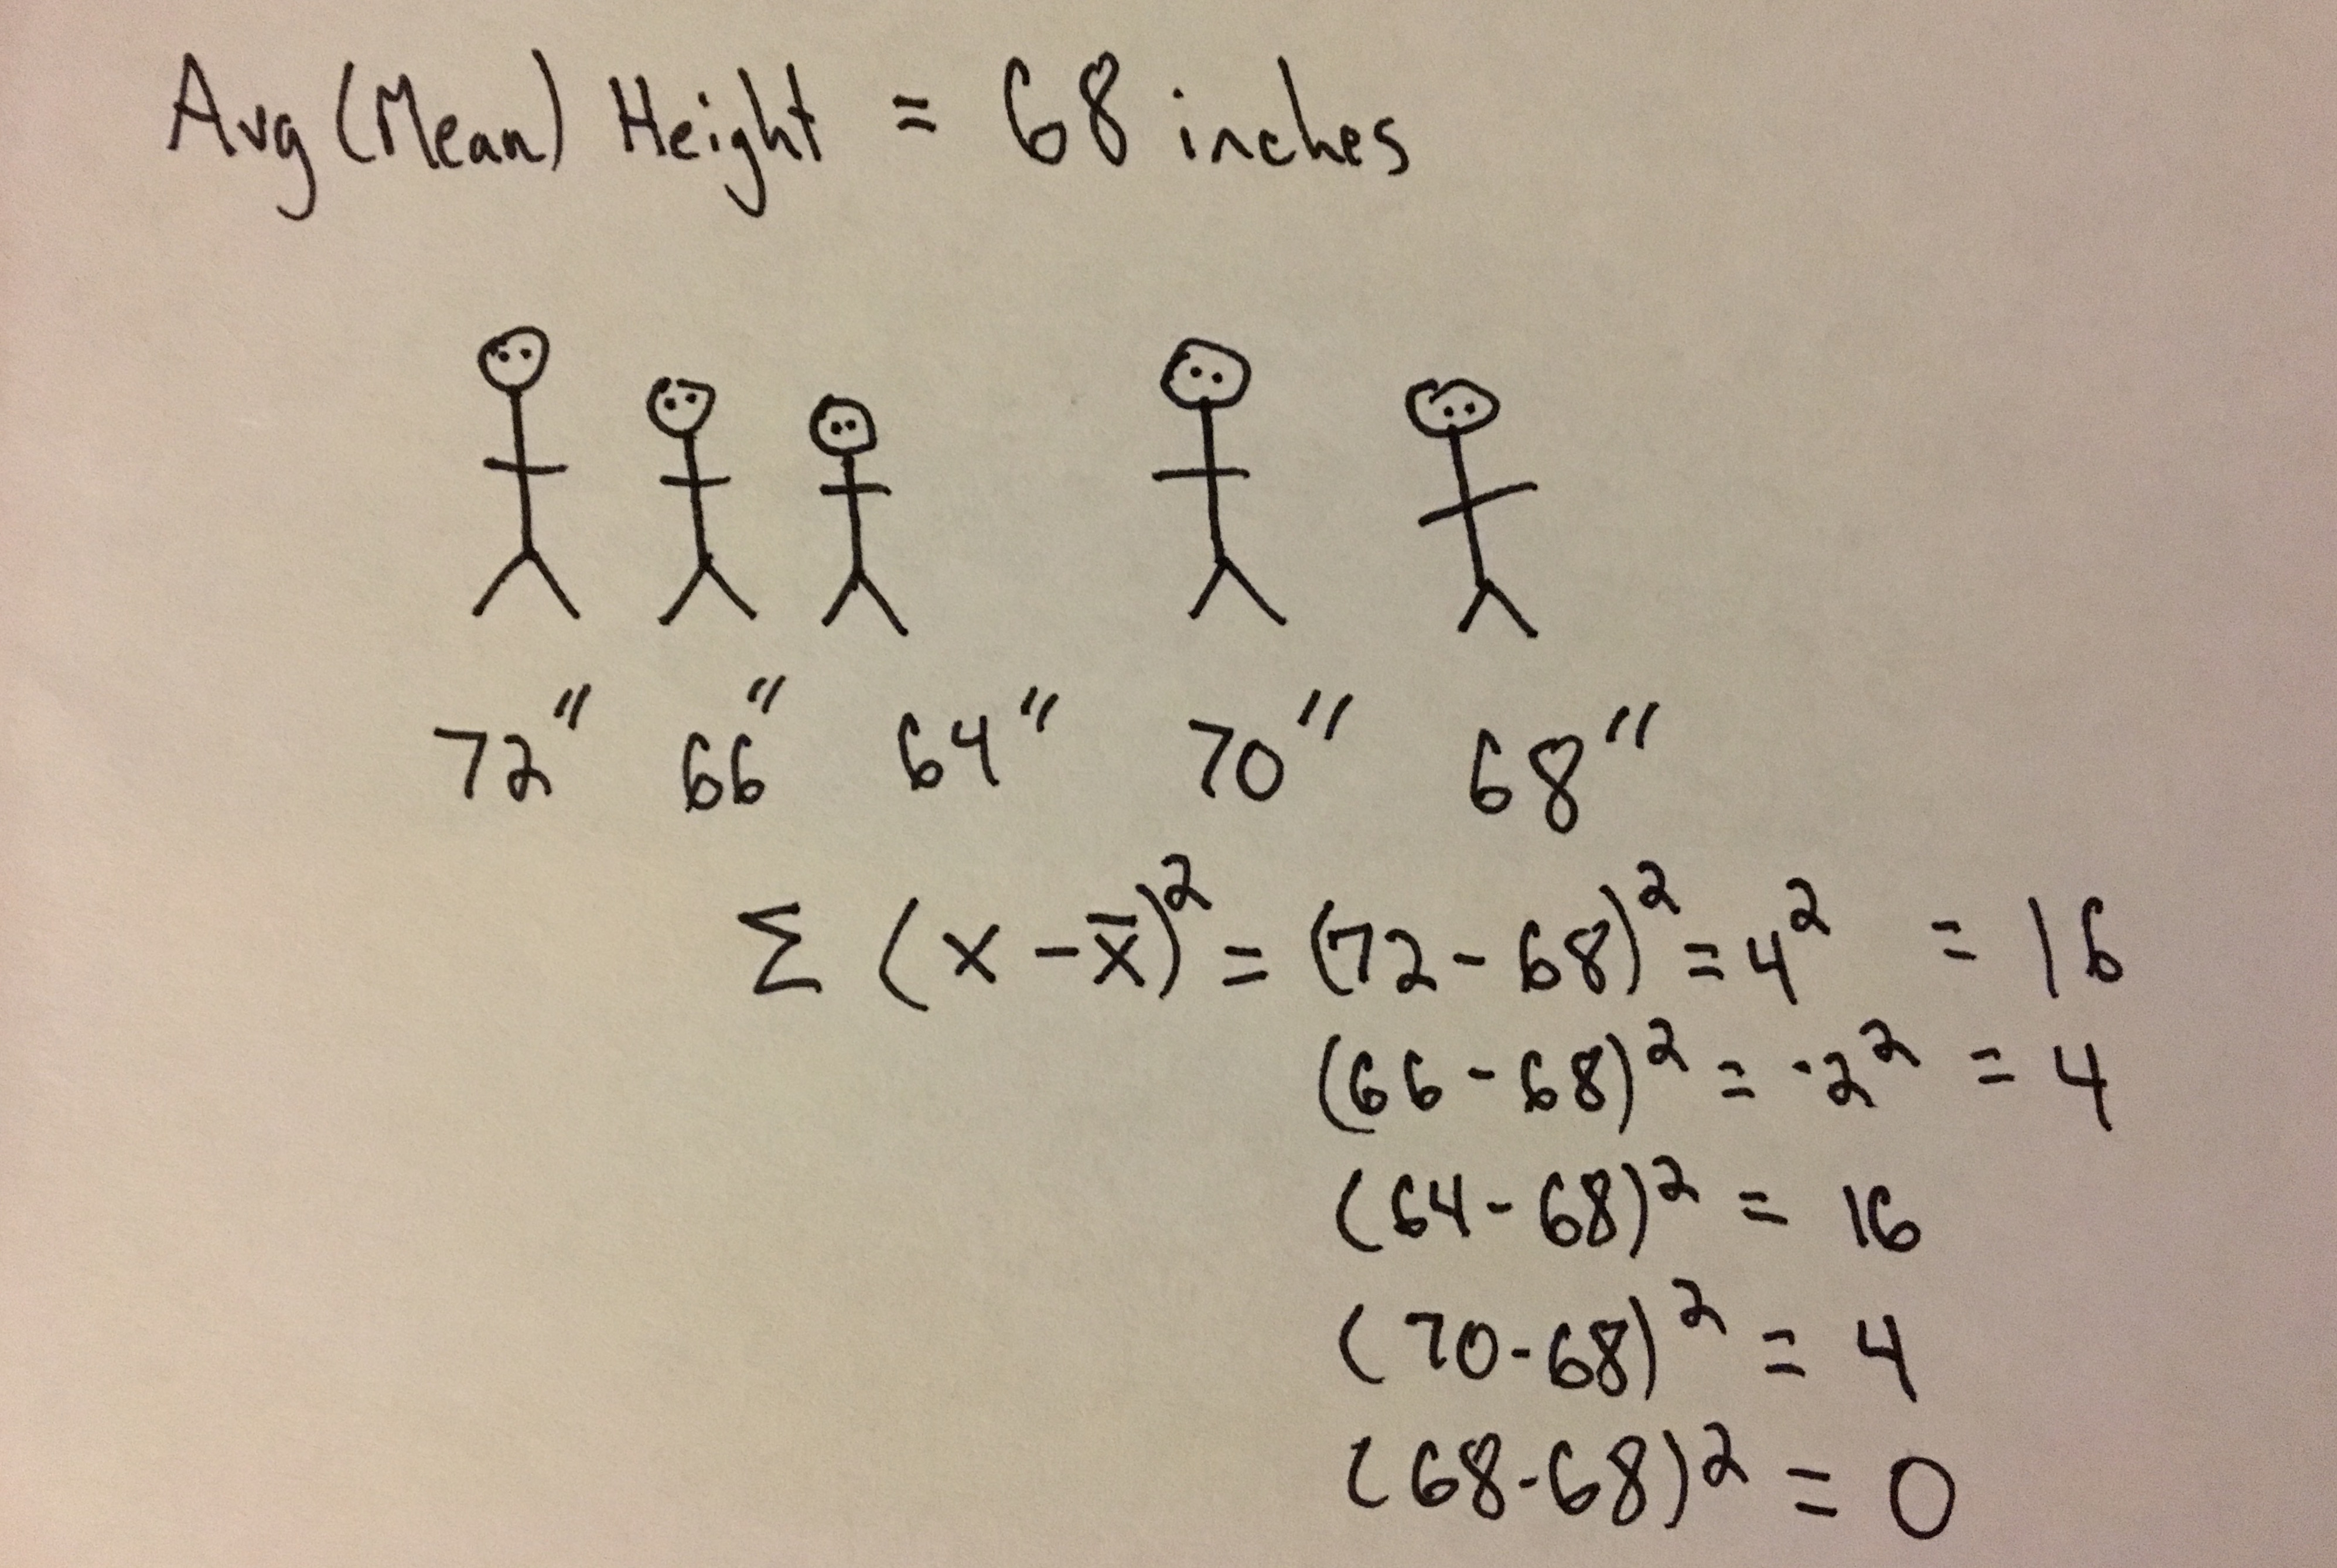 Avg (Mean) Height = 68 inches
72" 66" 64" 70" 68"
Σ (x - x̄)² = (72 - 68)² = 4² = 16
(66 - 68)² = -2² = 4
(64 - 68)² = 16
(70 - 68)² = 4
(68 - 68)² = 0